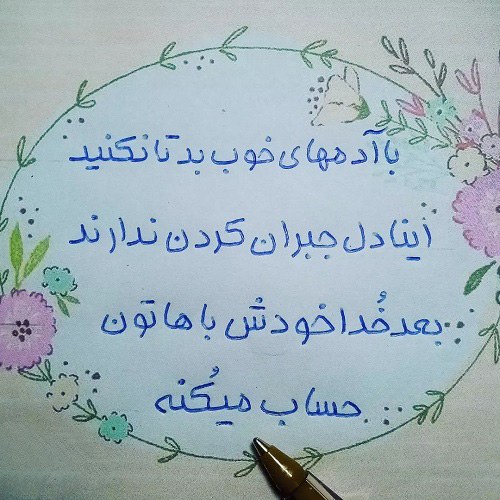 با آدمهای خوب بد تا نکنید
اینا دل جبران کردن ندارند
بعد خُدا خودش باهاتون
حساب میکُنه